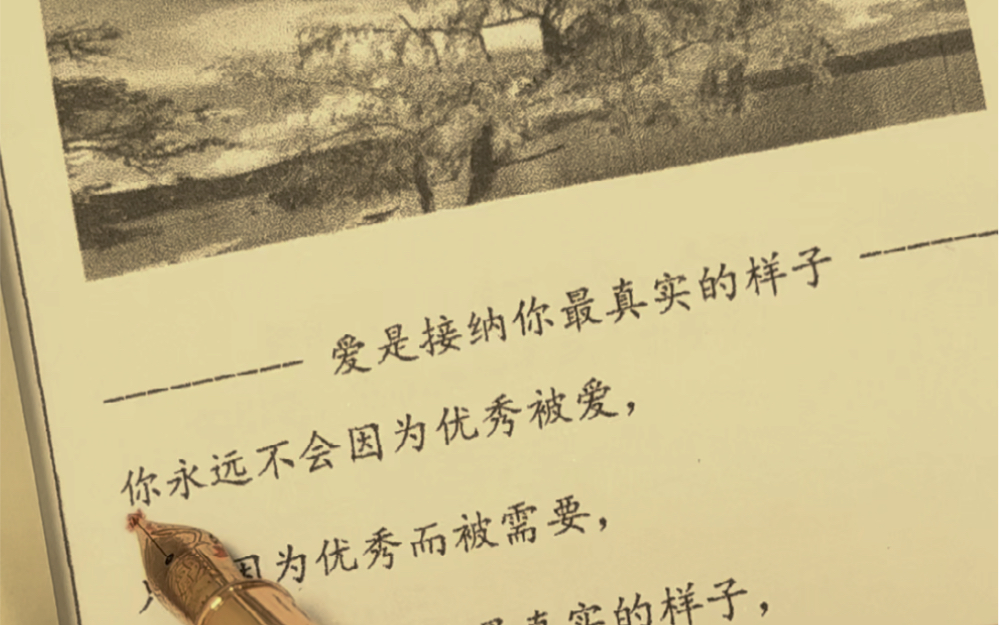 爱是接纳你最真实的样子
你永远不会因为优秀被爱，
因为优秀而被需要，
真实的样子，